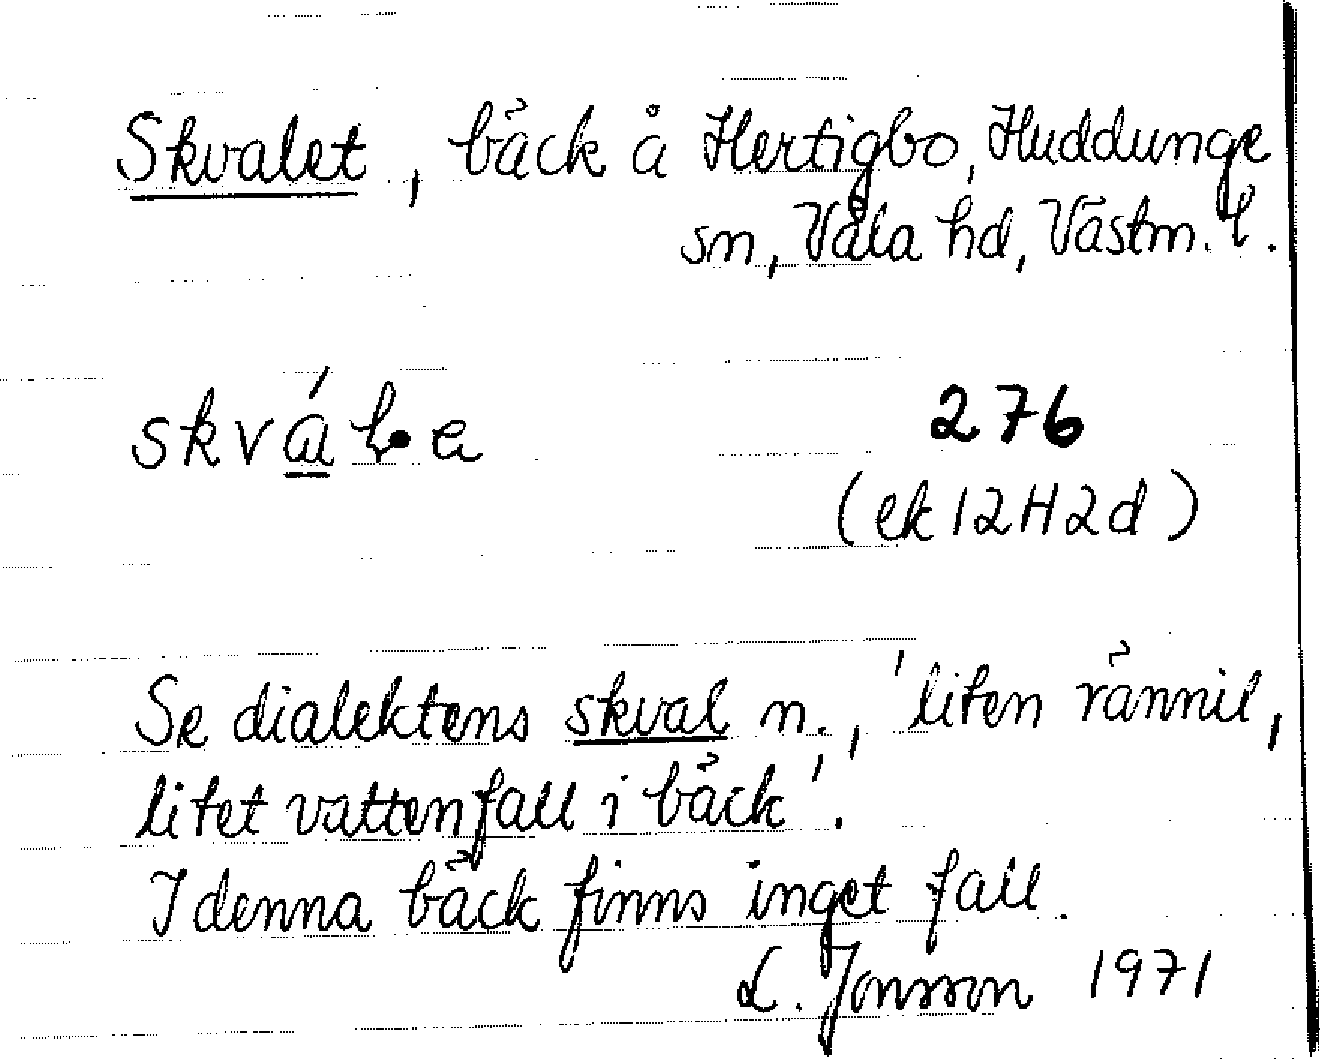 Skvalet, bäck å Hertigbo, Huddunge
sn, Våla hd, Västm. l.
276
(ek 12H2d)
Se dialektens skval n., 'liten rännil,
litet vattenfall i bäck'.
I denna bäck finns inget fall.
L. Jonsson 1971